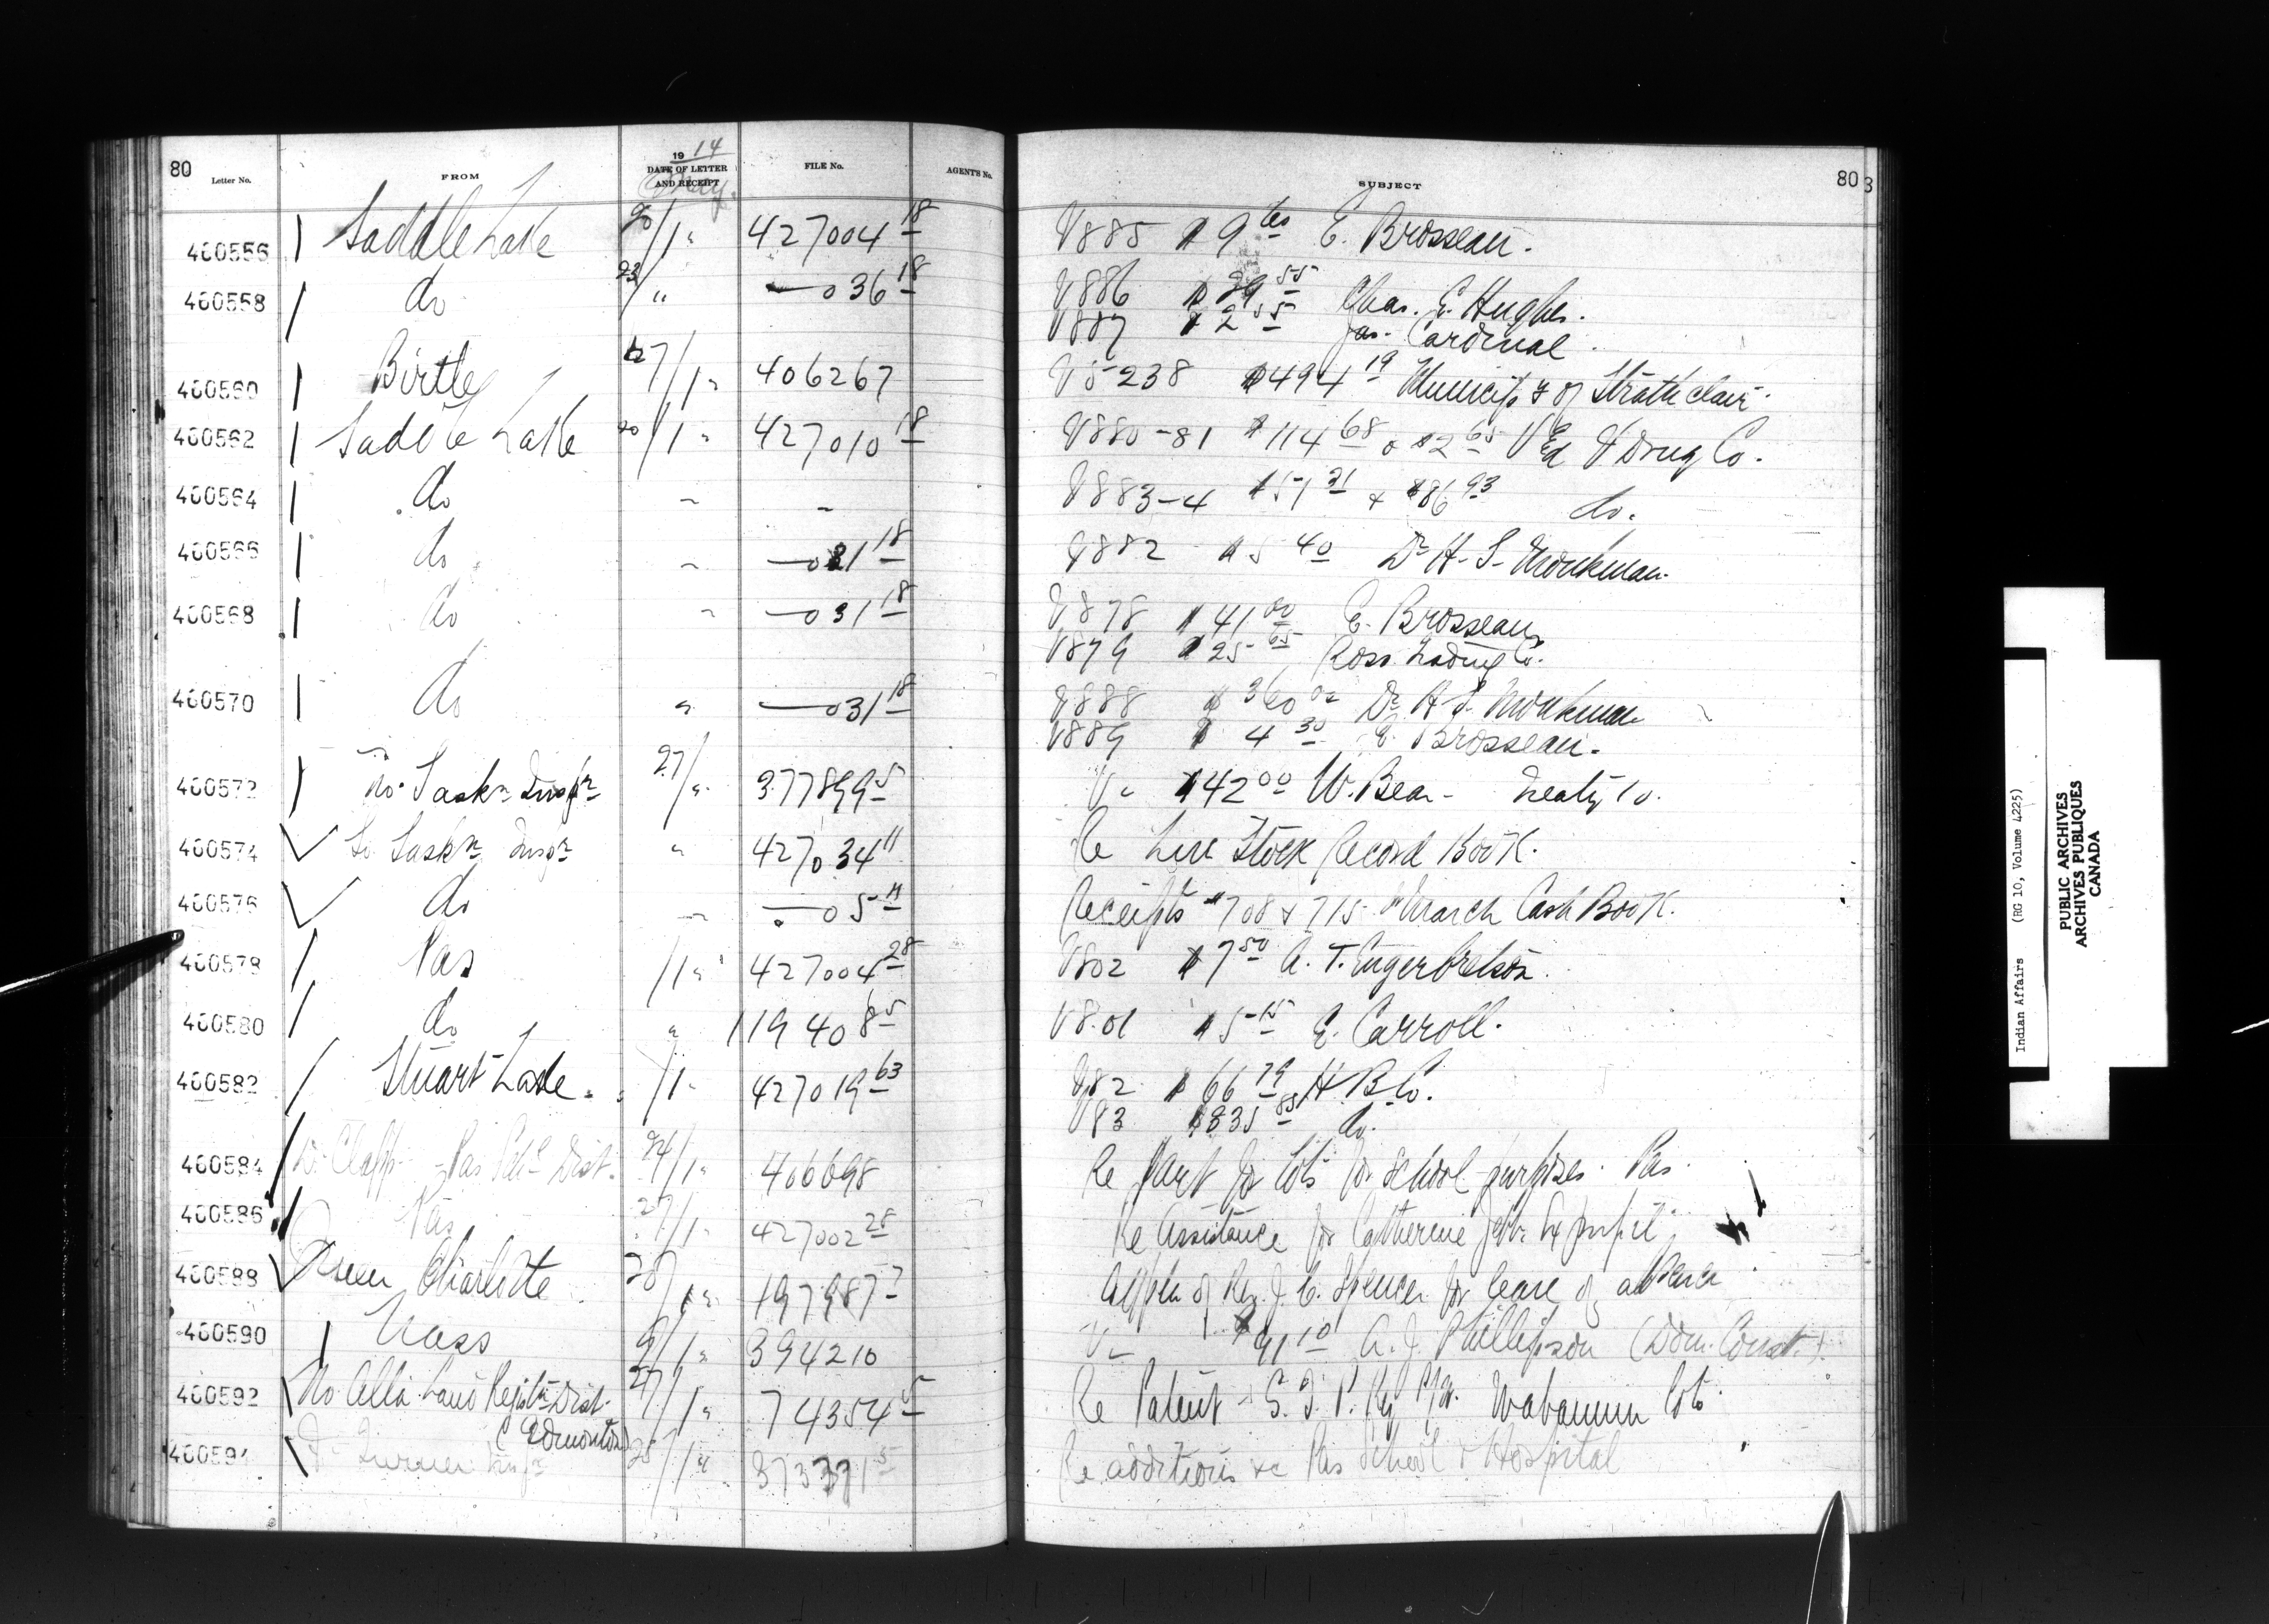 80
Letter No. FROM 1914 DATE OF LETTER AND RECEIPT May. FILE No. AGENT'S No. SUBJECT 80 3
400556 Saddle Lake 20/1 " 427004 18 V885 $9 60 E. Brosseau.
400558 do 23/ " — 036 18 V886 $29 55 Chas. E. Hughes.
V887 $2 55 Jas. Cardinal.
400560 Birtle 27/1 " 406267 V5238 $494 19 Municip'y of Strathclair.
400562 Saddle Lake 20/1 " 427010 18 V880-81 $114 68 & $2 65 Ed Drug Co.
400564 do " " V883-4 $51 21 & $86 93 do.
400566 do " — 031 18 V882 $5 40 Dr H. S. Monkman.
400568 do " — 031 18 V878 $41 00 E. Brosseau
V879 $25 65 Ross Trading Co.
400570 do " — 031 18 V888 $360 00 Dr H. S. Monkman
V889 $4 30 E. Brosseau.
400572 No. Saskn Inspr 27/ " 377899 5 V " $42 00 W. Bear - Treaty 10.
400574 So. Saskn Inspr " 427034 11 Re Live Stock Record Book.
400576 do " — 05 11 Receipts #708 & 715 March Cash Book.
400578 Pas /1 " 427004 28 V802 $7 50 A. T. Engerbretson.
400580 do " 119408 5 V801 $5 15 E. Carroll.
400582 Stuart Lake. /1 " 427019 63 V82 $66 79 H B Co.
V83 $335 85 do.
400584 D. Clapp - Pas Schl Dist. 24/1 " 406698 Re paint for lots for school purposes. Pas.
400586 Pas 27/1 " 427002 28 Re Assistance for Catherine Jebb Ex pupil
400588 Queen Charlotte 20/1 " 197987 7 Appln of Rev. J. C. Spencer for leave of absence
400590 Nass 9/1 " 394210 V " $91 10 A. J. Phillipson (Dom. Const.).
400592 No. Alba Land Registn Dist. 27/1 " 74354 5 Re Patent G. T. P. Ry R/W. Wabamun Lots
(Edmonton)
400594 Turner 25/1 " 373371 5 Re additions &c Pas School & Hospital
Indian Affairs (RG 10, Volume 4225)
PUBLIC ARCHIVES
ARCHIVES PUBLIQUES
CANADA